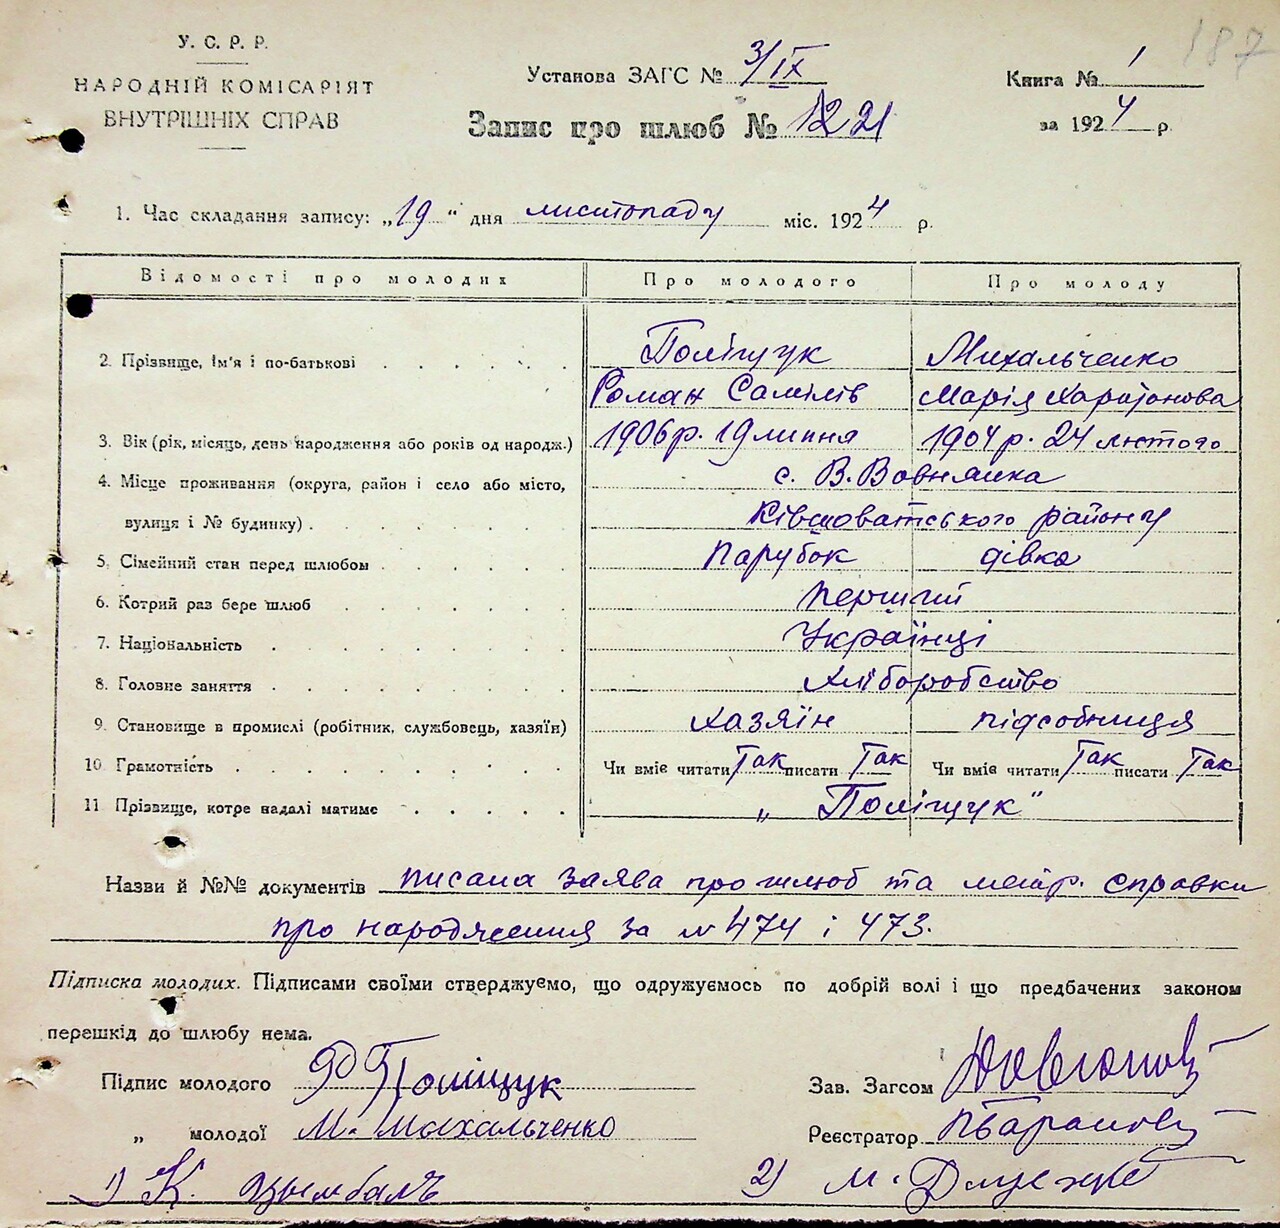 187
У. С. Р. Р.
НАРОДНІЙ КОМІСАРІЯТ
ВНУТРІШНІХ СПРАВ
Установа ЗАГС № 3/IX
Книга № 1
Запис про шлюб № 21
за 1924 р.
1. Час складання запису: „19" дня листопаду міс. 1924 р.
Відомості про молодих Про молодого Про молоду
2. Прізвище, ім'я і по-батькові Поліщук Михальченко
Роман Самілів Марія Харитонова
3. Вік (рік, місяць, день народження або років од народж.) 1906 р. 19 липня 1904 р. 24 лютого
4. Місце проживання (округа, район і село або місто, с. В. Вовнянка
вулиця і № будинку) Ківшоватського району
5. Сімейний стан перед шлюбом Парубок дівка
6. Котрий раз бере шлюб перший
7. Національність Українці
8. Головне заняття хліборобство
9. Становище в промислі (робітник, службовець, хазяїн) хазяїн підсобниця
10. Грамотність Чи вміє читати Так писати Так Чи вміє читати Так писати Так
11. Прізвище, котре надалі матиме „Поліщук"
Назви й №№ документів писана заява про шлюб та метр. справки
про народження за № 474 і 473.
Підписка молодих. Підписами своїми стверджуємо, що одружуємось по добрій волі і що предбачених законом
перешкід до шлюбу нема.
Підпис молодого Р Поліщук
Зав. Загсом
„ молодої М. Михальченко
Реєстратор
1) К. Цымбалъ 2) М.